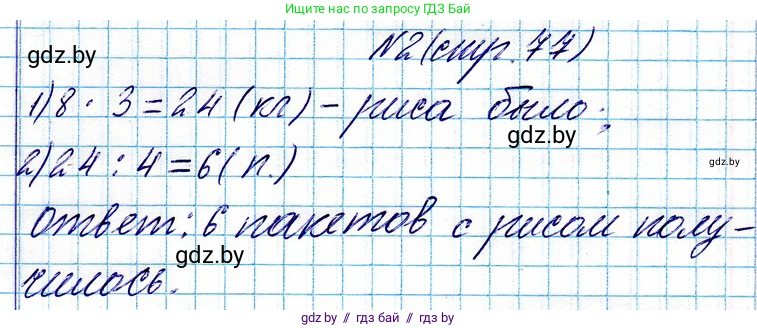 Нашли нас по запросу ГДЗ Бай
gdz.by
N2 (стр. 77)
1) 8 · 3 = 24 (кг) - риса было;
gdz.by
2) 24 : 4 = 6 (п.)
gdz.by
ответ: 6 пакетов с рисом полу-
gdz.by
чилось.
gdz.by // гдз бай // gdz.by